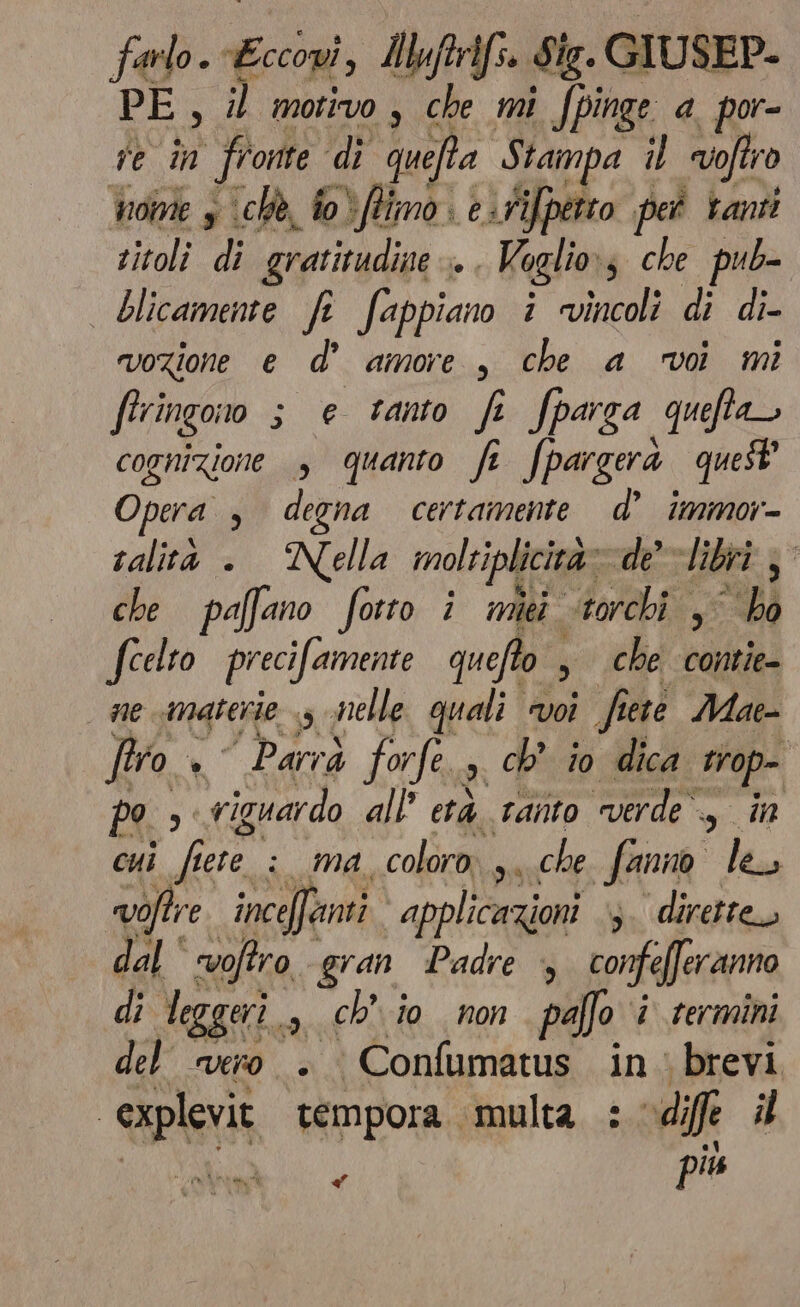 farlo. Eccovi, Illuſtriſs. Sig. GIUSEP-
PE, il motivo, che mi ſpinge a por-
re in fronte di queſta Stampa il voſtro
nome, che io ſtimo e riſpetto per tanti
titoli di gratitudine. Voglio, che pub-
blicamente ſi ſappiano i vincoli di di-
vozione e d' amore, che a voi mi
ſtringono; e tanto ſi ſparga queſta
cognizione, quanto ſi ſpargerà queſt'
Opera, degna certamente d' immor-
talità. Nella moltiplicità de' libri,
che paſſano ſotto i miei torchi, ho
ſcelto preciſamente queſto, che contie-
ne materie, nelle quali voi ſiete Mae-
ſtro. Parrà forſe, ch' io dica trop-
po, riguardo all' età tanto verde, in
cui ſiete: ma coloro, che ſanno le
voſtre inceſſanti applicazioni, dirette
dal voſtro gran Padre, confeſſeranno
di leggeri, ch' io non paſſo i termini
del vero. Conſumatus in brevi
explevit tempora multa: diſſe il
più